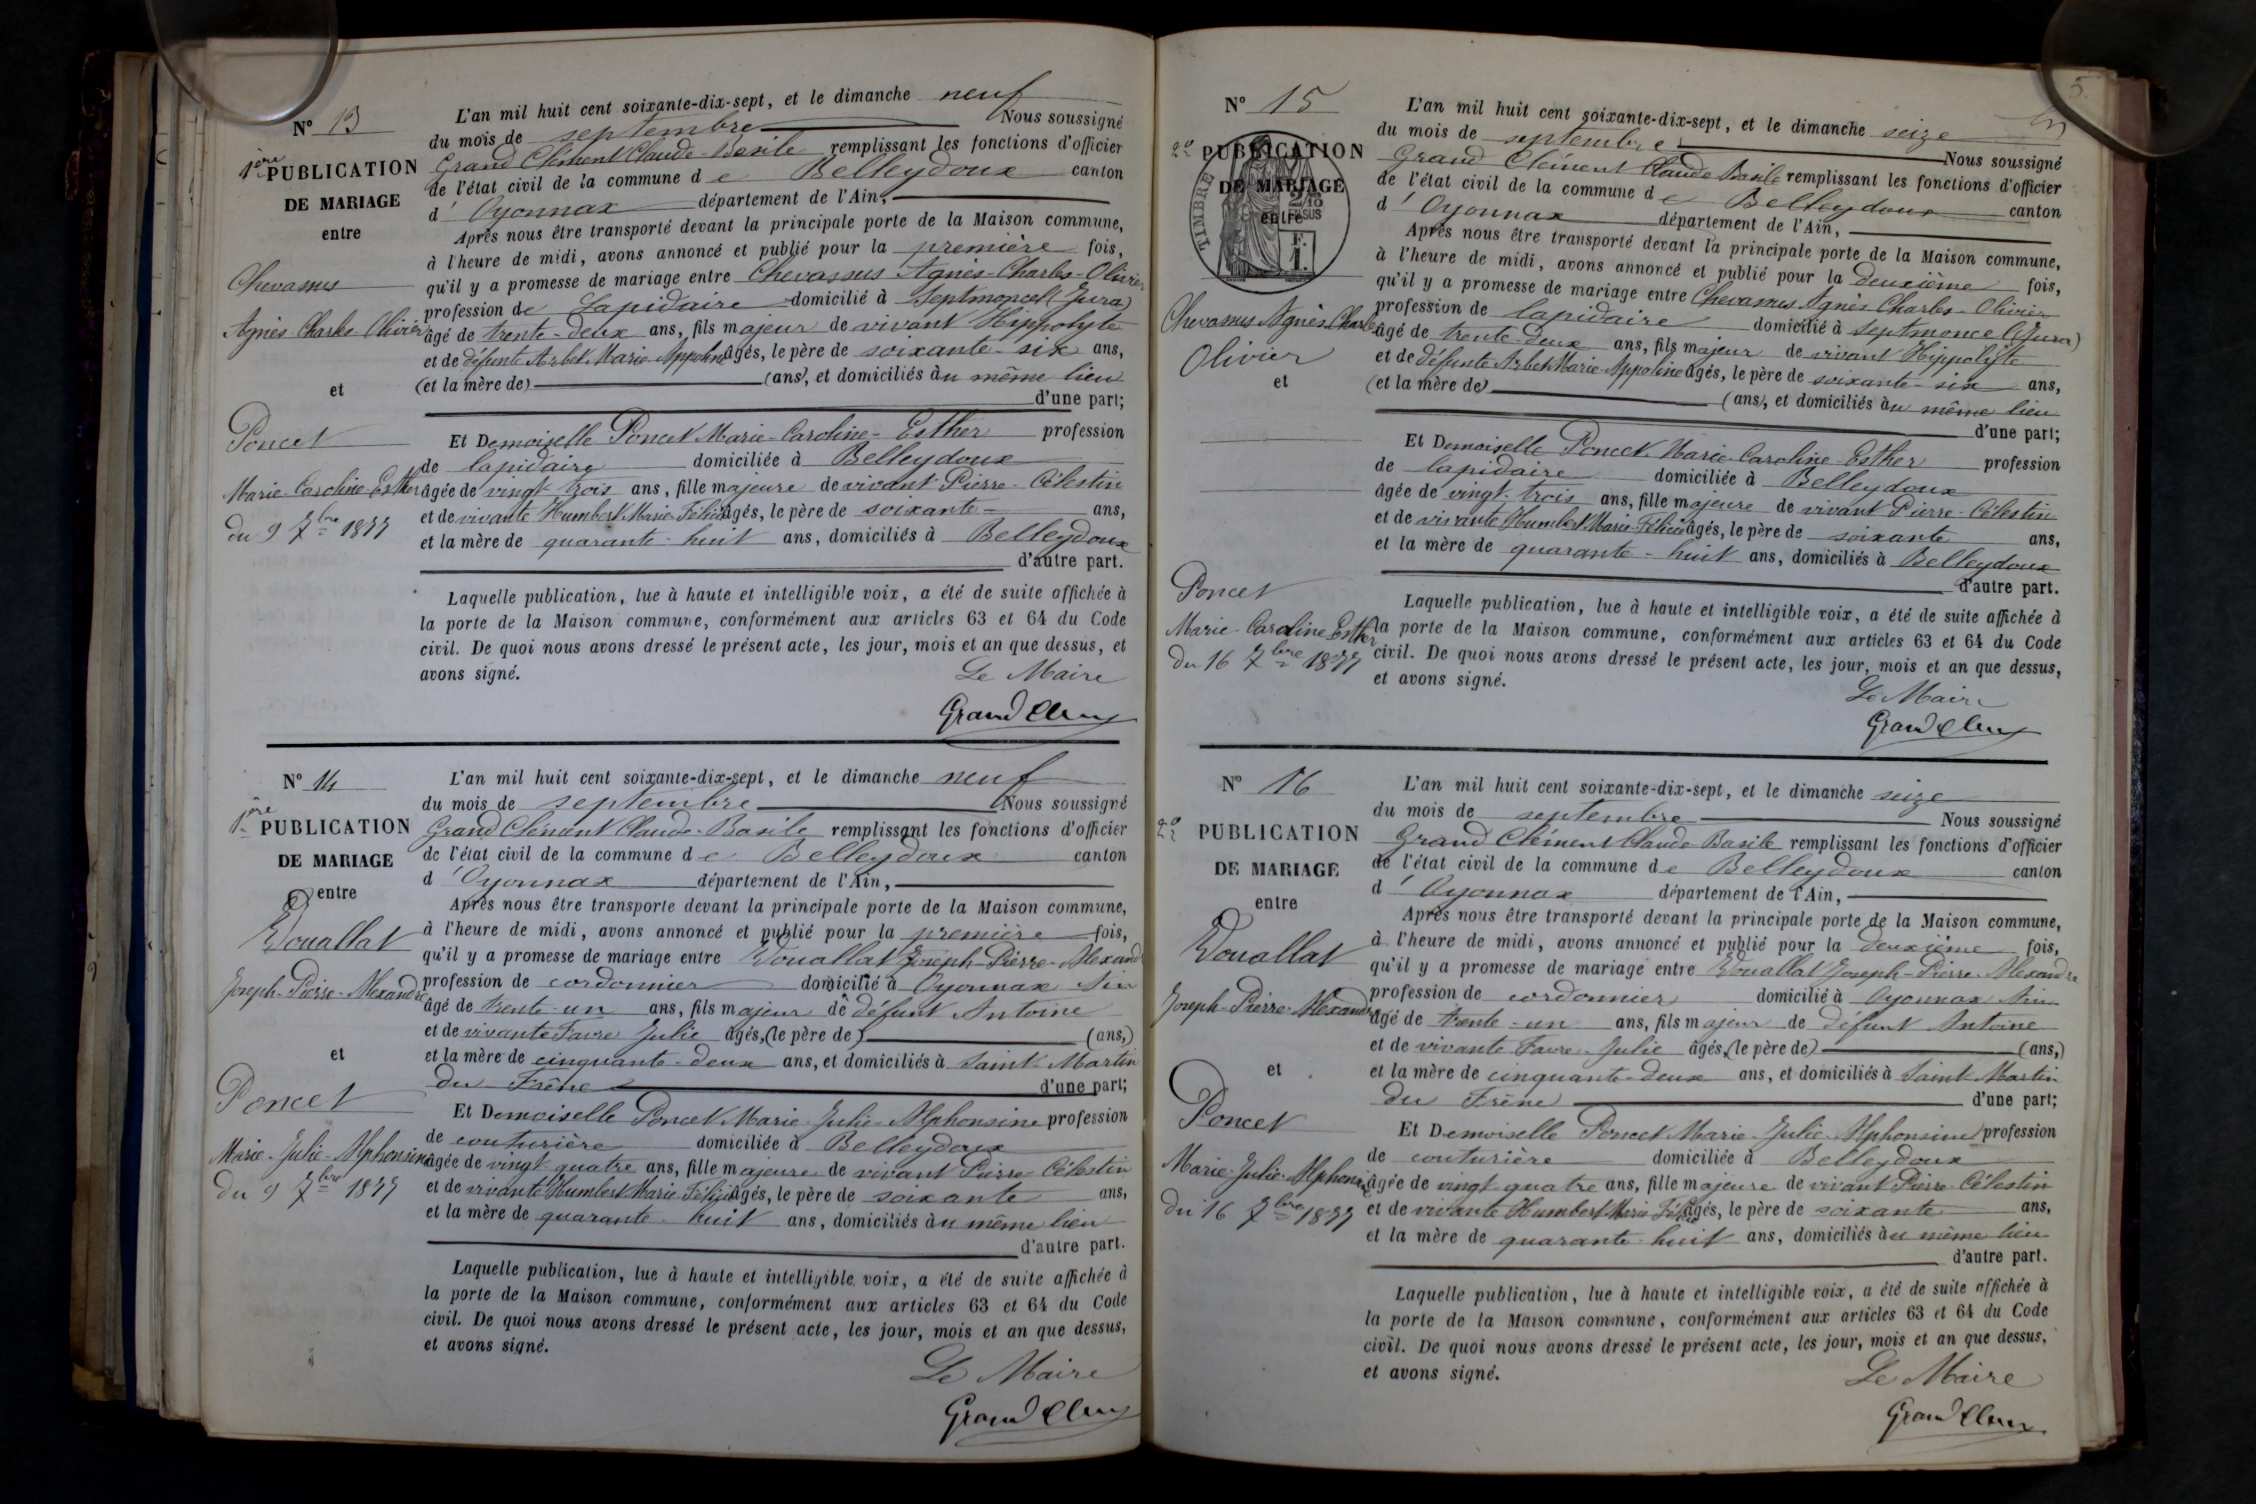 N° 13
1ère PUBLICATION
DE MARIAGE
entre
Chevassus
Agnès Charles Olivier
et
Poncet
Marie-Caroline Esther
du 9 7bre 1877
L'an mil huit cent soixante-dix-sept, et le dimanche neuf
du mois de septembre Nous soussigné
Grand Clément Claude-Basile remplissant les fonctions d'officier
de l'état civil de la commune de Belleydoux canton
d'Oyonnax département de l'Ain,
Après nous être transporté devant la principale porte de la Maison commune,
à l'heure de midi, avons annoncé et publié pour la première fois,
qu'il y a promesse de mariage entre Chevassus Agnès-Charles-Olivier
profession de Lapidaire domicilié à Septmoncel (Jura)
âgé de trente-deux ans, fils majeur de vivant Hippolyte
et de défunte Arbel Marie-Appoline âgés, le père de soixante-six ans,
(et la mère de) (ans), et domiciliés au même lieu
d'une part;
Et Demoiselle Poncet Marie-Caroline-Esther profession
de lapidaire domiciliée à Belleydoux
âgée de vingt-trois ans, fille majeure de vivant Pierre-Célestin
et de vivante Humbert Marie Félicie âgés, le père de soixante ans,
et la mère de quarante-huit ans, domiciliés à Belleydoux
d'autre part.
Laquelle publication, lue à haute et intelligible voix, a été de suite affichée à
la porte de la Maison commune, conformément aux articles 63 et 64 du Code
civil. De quoi nous avons dressé le présent acte, les jour, mois et an que dessus, et
avons signé.
Le Maire
Grand Clém
N° 14
1ère PUBLICATION
DE MARIAGE
entre
Douallat
Joseph-Pierre-Alexandre
et
Poncet
Marie-Julie-Alphonsine
du 9 7bre 1877
L'an mil huit cent soixante-dix-sept, et le dimanche neuf
du mois de septembre Nous soussigné
Grand Clément Claude-Basile remplissant les fonctions d'officier
de l'état civil de la commune de Belleydoux canton
d'Oyonnax département de l'Ain,
Après nous être transporté devant la principale porte de la Maison commune,
à l'heure de midi, avons annoncé et publié pour la première fois,
qu'il y a promesse de mariage entre Douallat Joseph-Pierre-Alexand
profession de cordonnier domicilié à Oyonnax Ain
âgé de trente-un ans, fils majeur de défunt Antoine
et de vivante Favre Julie âgés, (le père de) (ans,)
et la mère de cinquante-deux ans, et domiciliés à Saint-Martin
du Frêne d'une part;
Et Demoiselle Poncet Marie-Julie-Alphonsine profession
de couturière domiciliée à Belleydoux
âgée de vingt quatre ans, fille majeure de vivant Pierre Célestin
et de vivante Humbert Marie Félicie âgés, le père de soixante ans,
et la mère de quarante-huit ans, domiciliés au même lieu
d'autre part.
Laquelle publication, lue à haute et intelligible voix, a été de suite affichée à
la porte de la Maison commune, conformément aux articles 63 et 64 du Code
civil. De quoi nous avons dressé le présent acte, les jour, mois et an que dessus,
et avons signé.
Le Maire
Grand Clém
5.
N° 15
2e PUBLICATION
DE MARIAGE
entre
TIMBRE
2/10
EN SUS
F.
1.
Chevassus Agnès Charles
Olivier
et
Poncet
Marie-Caroline Esther
du 16 7bre 1877
L'an mil huit cent soixante-dix-sept, et le dimanche seize
du mois de septembre Nous soussigné
Grand Clément Claude Basile remplissant les fonctions d'officier
de l'état civil de la commune de Belleydoux canton
d'Oyonnax département de l'Ain,
Après nous être transporté devant la principale porte de la Maison commune,
à l'heure de midi, avons annoncé et publié pour la deuxième fois,
qu'il y a promesse de mariage entre Chevassus Agnès Charles-Olivier
profession de lapidaire domicilié à Septmoncel (Jura)
âgé de trente-deux ans, fils majeur de vivant Hippolyte
et de défunte Arbel Marie-Appoline âgés, le père de soixante-six ans,
(et la mère de) (ans), et domiciliés au même lieu
d'une part;
Et Demoiselle Poncet Marie-Caroline-Esther profession
de lapidaire domiciliée à Belleydoux
âgée de vingt-trois ans, fille majeure de vivant Pierre-Célestin
et de vivante Humbert Marie Félicie âgés, le père de soixante ans,
et la mère de quarante-huit ans, domiciliés à Belleydoux
d'autre part.
Laquelle publication, lue à haute et intelligible voix, a été de suite affichée à
la porte de la Maison commune, conformément aux articles 63 et 64 du Code
civil. De quoi nous avons dressé le présent acte, les jour, mois et an que dessus,
et avons signé.
Le Maire
Grand Clém
N° 16
2e PUBLICATION
DE MARIAGE
entre
Douallat
Joseph-Pierre-Alexandre
et
Poncet
Marie-Julie-Alphonsine
du 16 7bre 1877
L'an mil huit cent soixante-dix-sept, et le dimanche seize
du mois de septembre Nous soussigné
Grand Clément Claude Basile remplissant les fonctions d'officier
de l'état civil de la commune de Belleydoux canton
d'Oyonnax département de l'Ain,
Après nous être transporté devant la principale porte de la Maison commune,
à l'heure de midi, avons annoncé et publié pour la deuxième fois,
qu'il y a promesse de mariage entre Douallat Joseph-Pierre-Alexandre
profession de cordonnier domicilié à Oyonnax Ain
âgé de trente-un ans, fils majeur de défunt Antoine
et de vivante Favre Julie âgés, (le père de) (ans,)
et la mère de cinquante-deux ans, et domiciliés à Saint Martin
du Frêne d'une part;
Et Demoiselle Poncet Marie-Julie-Alphonsine profession
de couturière domiciliée à Belleydoux
âgée de vingt quatre ans, fille majeure de vivant Pierre Célestin
et de vivante Humbert Marie Félicie âgés, le père de soixante ans,
et la mère de quarante-huit ans, domiciliés au même lieu
d'autre part.
Laquelle publication, lue à haute et intelligible voix, a été de suite affichée à
la porte de la Maison commune, conformément aux articles 63 et 64 du Code
civil. De quoi nous avons dressé le présent acte, les jour, mois et an que dessus,
et avons signé.
Le Maire
Grand Clém